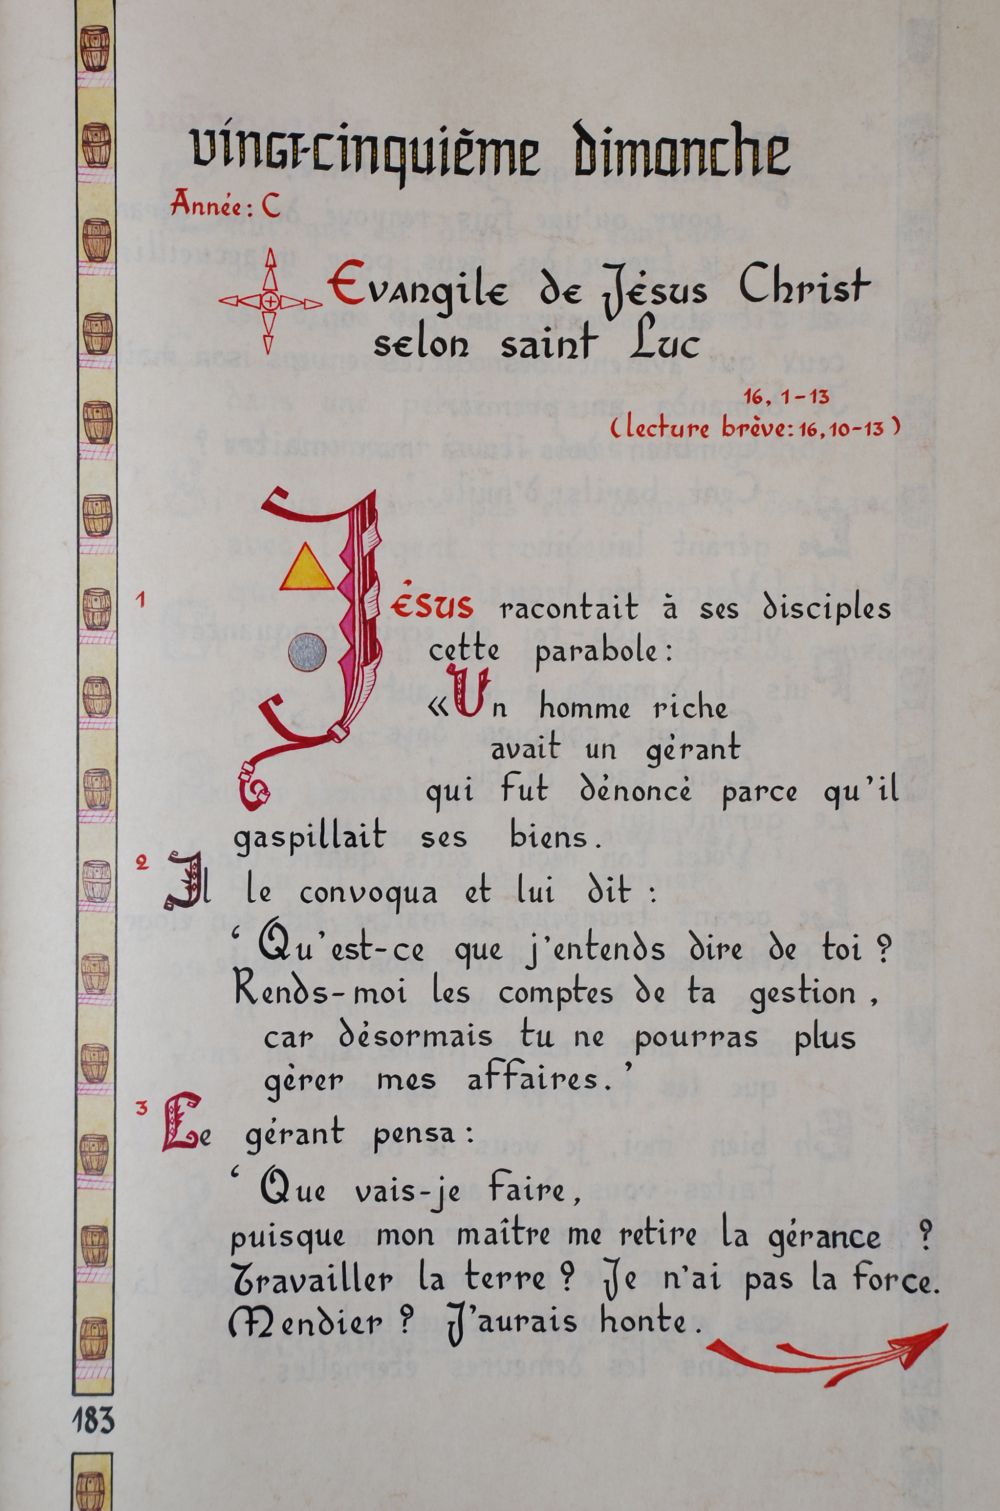 vingt-cinquième dimanche
Année: C
Evangile de Jésus Christ
selon saint Luc
16, 1-13
(lecture brève: 16, 10-13)
1 Jésus racontait à ses disciples
cette parabole:
«Un homme riche
avait un gérant
qui fut dénoncé parce qu'il
gaspillait ses biens.
2 Il le convoqua et lui dit :
‘Qu'est-ce que j'entends dire de toi ?
Rends-moi les comptes de ta gestion,
car désormais tu ne pourras plus
gérer mes affaires.’
3 Le gérant pensa :
‘Que vais-je faire,
puisque mon maître me retire la gérance ?
Travailler la terre ? Je n'ai pas la force.
Mendier ? J'aurais honte.
183